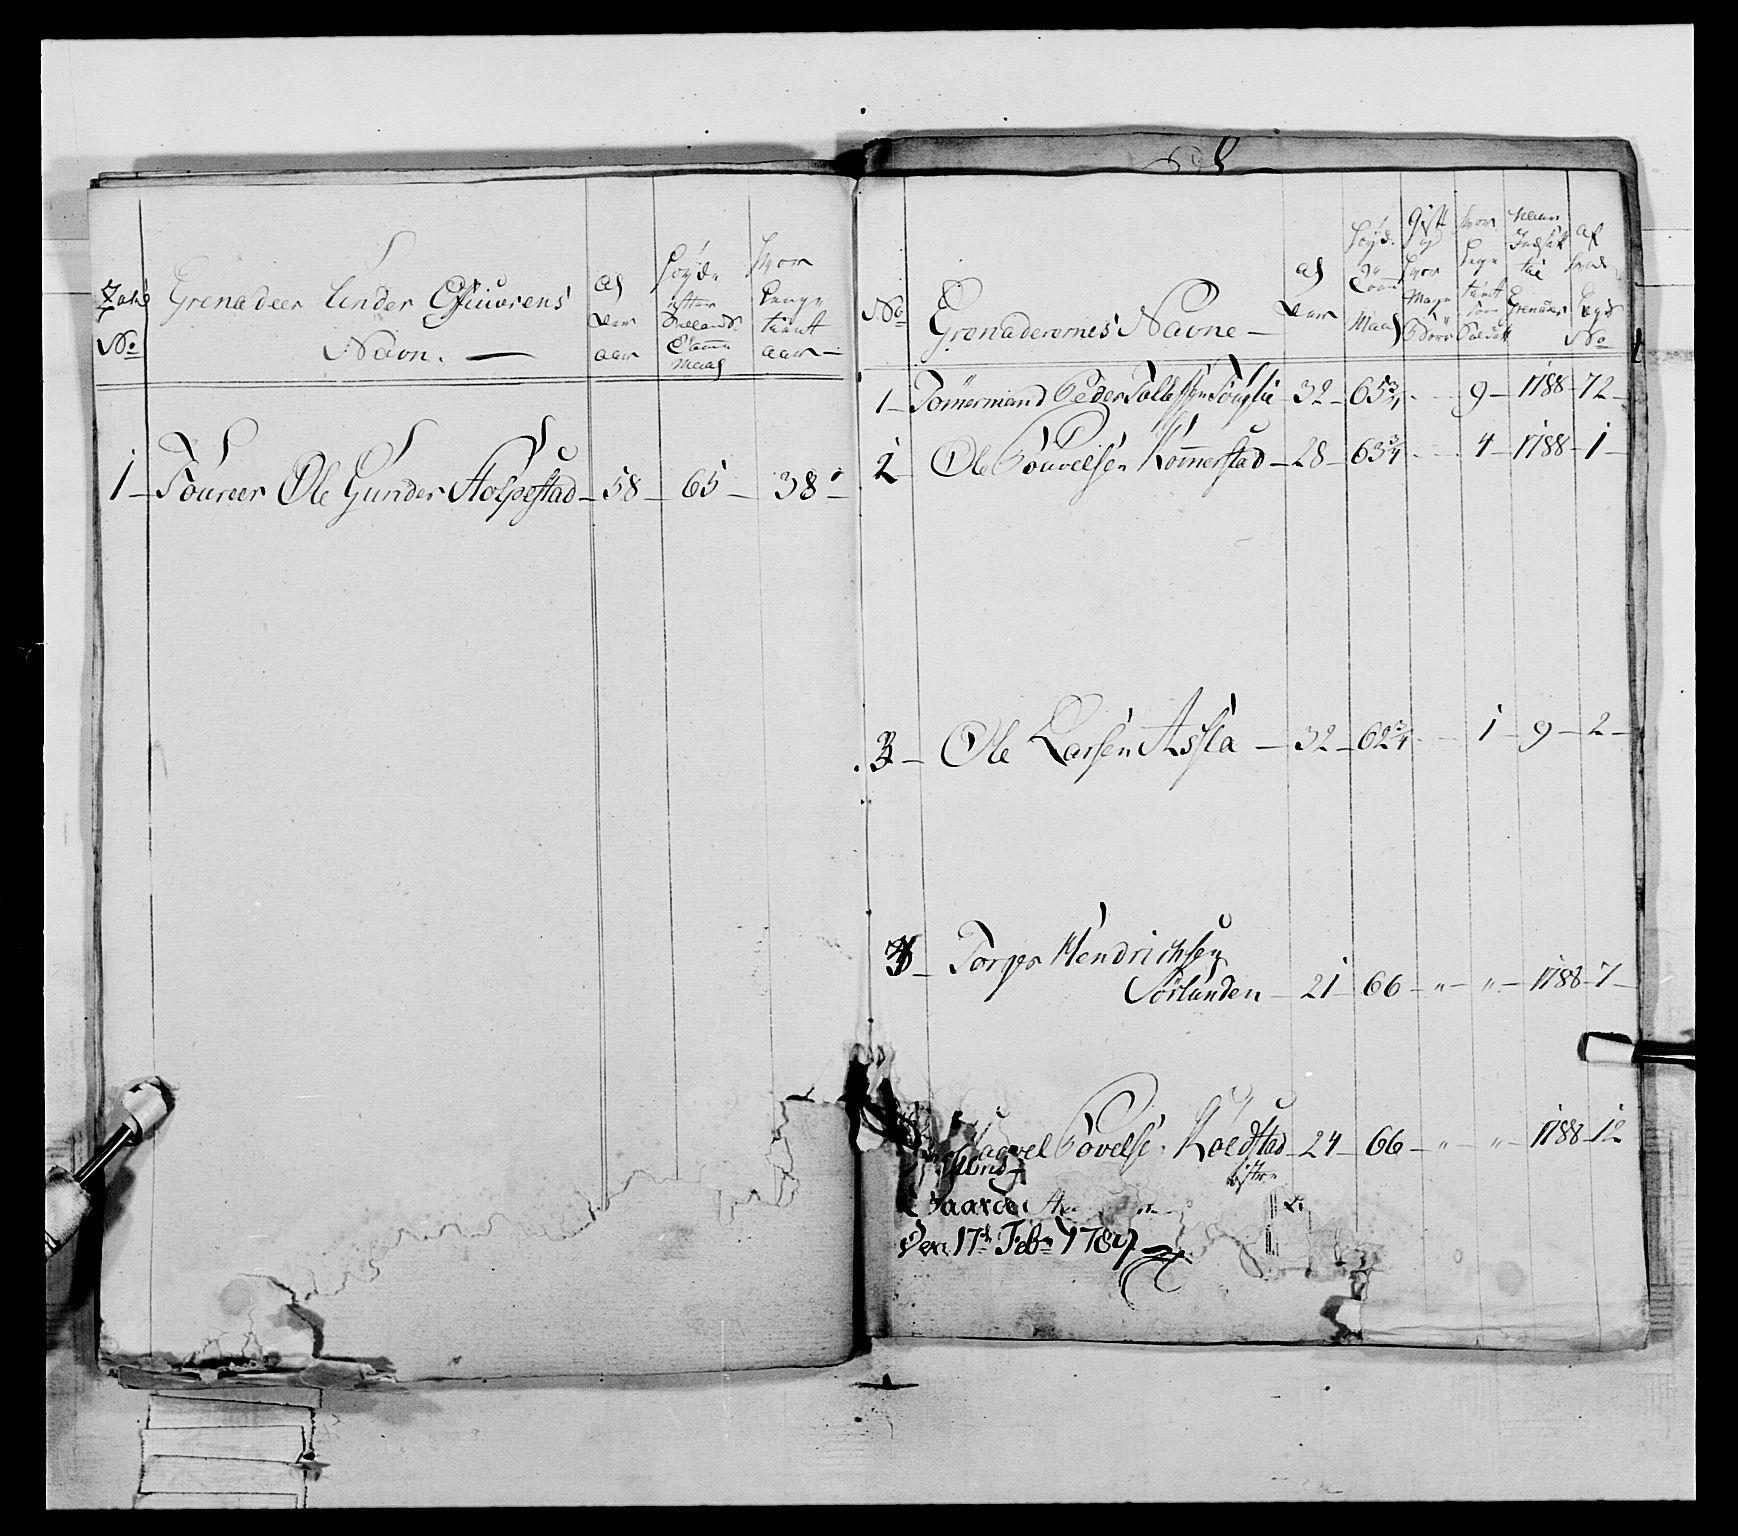 No
Grenadeer Under Officerens
Navn.
al
der
aar
Høyde
efter
Siællands
Stamme
Maal
Hvor
Lenge
tient
aar
1 Foureer Ole Gunder Holpestad 58 65 38
No
Grenaderernes Navne
al
der
Høyde
Maal
Gift
og
Hvor
Mange
Børn
Hvor
Lenge
tient
som
Soldatt
Naar
Indsatt
til
Grenadeer
af
hvad
Lægd
No
1 Tömermand Peder Tollefsen 32 65 3/4 9 1788 72
2 Ole Poulsen Kommerstad 28 63 3/4 4 1788 1
3 Ole Larsen Assla 32 62 3/4 1 9 2
Torger Hendrichsen
Sörlunden 21 66 " " 1788 7
Povelse Koldstad 24 66 " " 1788 12
Gaarden
Den 17de Febr 1789